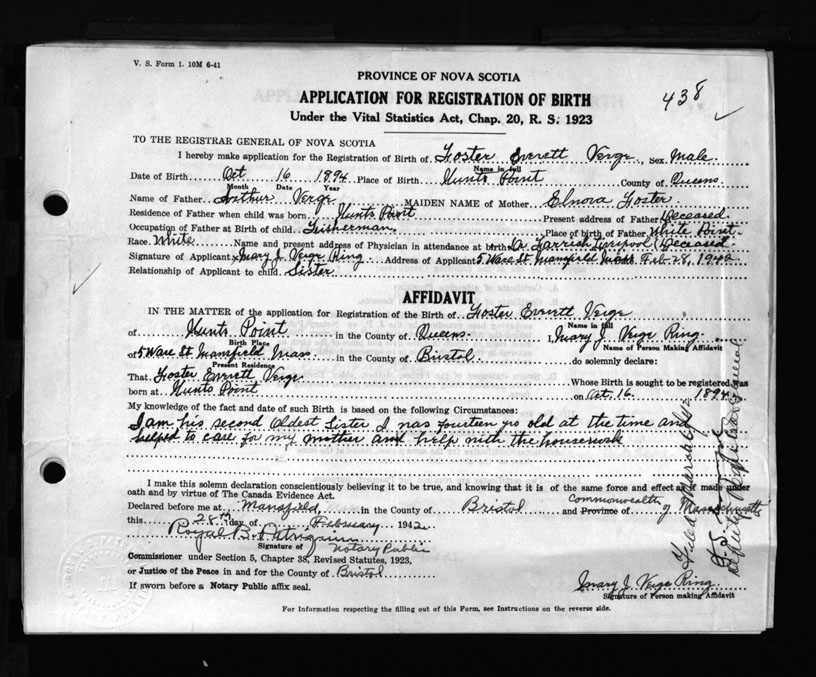 V. S. Form 1. 10M 6-41
PROVINCE OF NOVA SCOTIA
APPLICATION FOR REGISTRATION OF BIRTH
438
Under the Vital Statistics Act, Chap. 20, R. S. 1923
TO THE REGISTRAR GENERAL OF NOVA SCOTIA
I hereby make application for the Registration of Birth of Foster Everett Verge Sex Male
Name in full
Date of Birth Oct 16 1894 Place of Birth Hunts Point County of Queens
Month Date Year
Name of Father Arthur Verge MAIDEN NAME of Mother Elnora Foster
Residence of Father when child was born Hunts Point Present address of Father Deceased
Occupation of Father at Birth of child Fisherman. Place of birth of Father White Point
Race White Name and present address of Physician in attendance at birth Dr Farrish Liverpool (Deceased
Signature of Applicant x Mary J Verge Ring Address of Applicant 5 Ware St Mansfield Mass Feb 28, 1942
Relationship of Applicant to child Sister
AFFIDAVIT
IN THE MATTER of the application for Registration of the Birth of Foster Everett Verge
Name in full
of Hunts Point in the County of Queens I, Mary J Verge Ring
Birth Place Name of Person Making Affidavit
of 5 Ware St Mansfield Mass in the County of Bristol do solemnly declare:
Present Residence
That Foster Everett Verge Whose Birth is sought to be registered was
born at Hunts Point on Oct 16 1894
My knowledge of the fact and date of such Birth is based on the following Circumstances:
I am his second Oldest Sister I was fourteen yrs old at the time and
helped to care for my mother and help with the housework
I make this solemn declaration conscientiously believing it to be true, and knowing that it is of the same force and effect as if made under
oath and by virtue of The Canada Evidence Act.
Commonwealth
Declared before me at Mansfield, in the County of Bristol and Province of of Massachusetts
this 28th day of February 1942
Royal B.
Signature of Notary Public
Commissioner under Section 5, Chapter 38, Revised Statutes, 1923,
or Justice of the Peace in and for the County of Bristol
If sworn before a Notary Public affix seal.
Mary J. Verge Ring
Signature of Person making Affidavit
For Information respecting the filling out of this Form, see Instructions on the reverse side.
Filed March
Deputy Registrar General